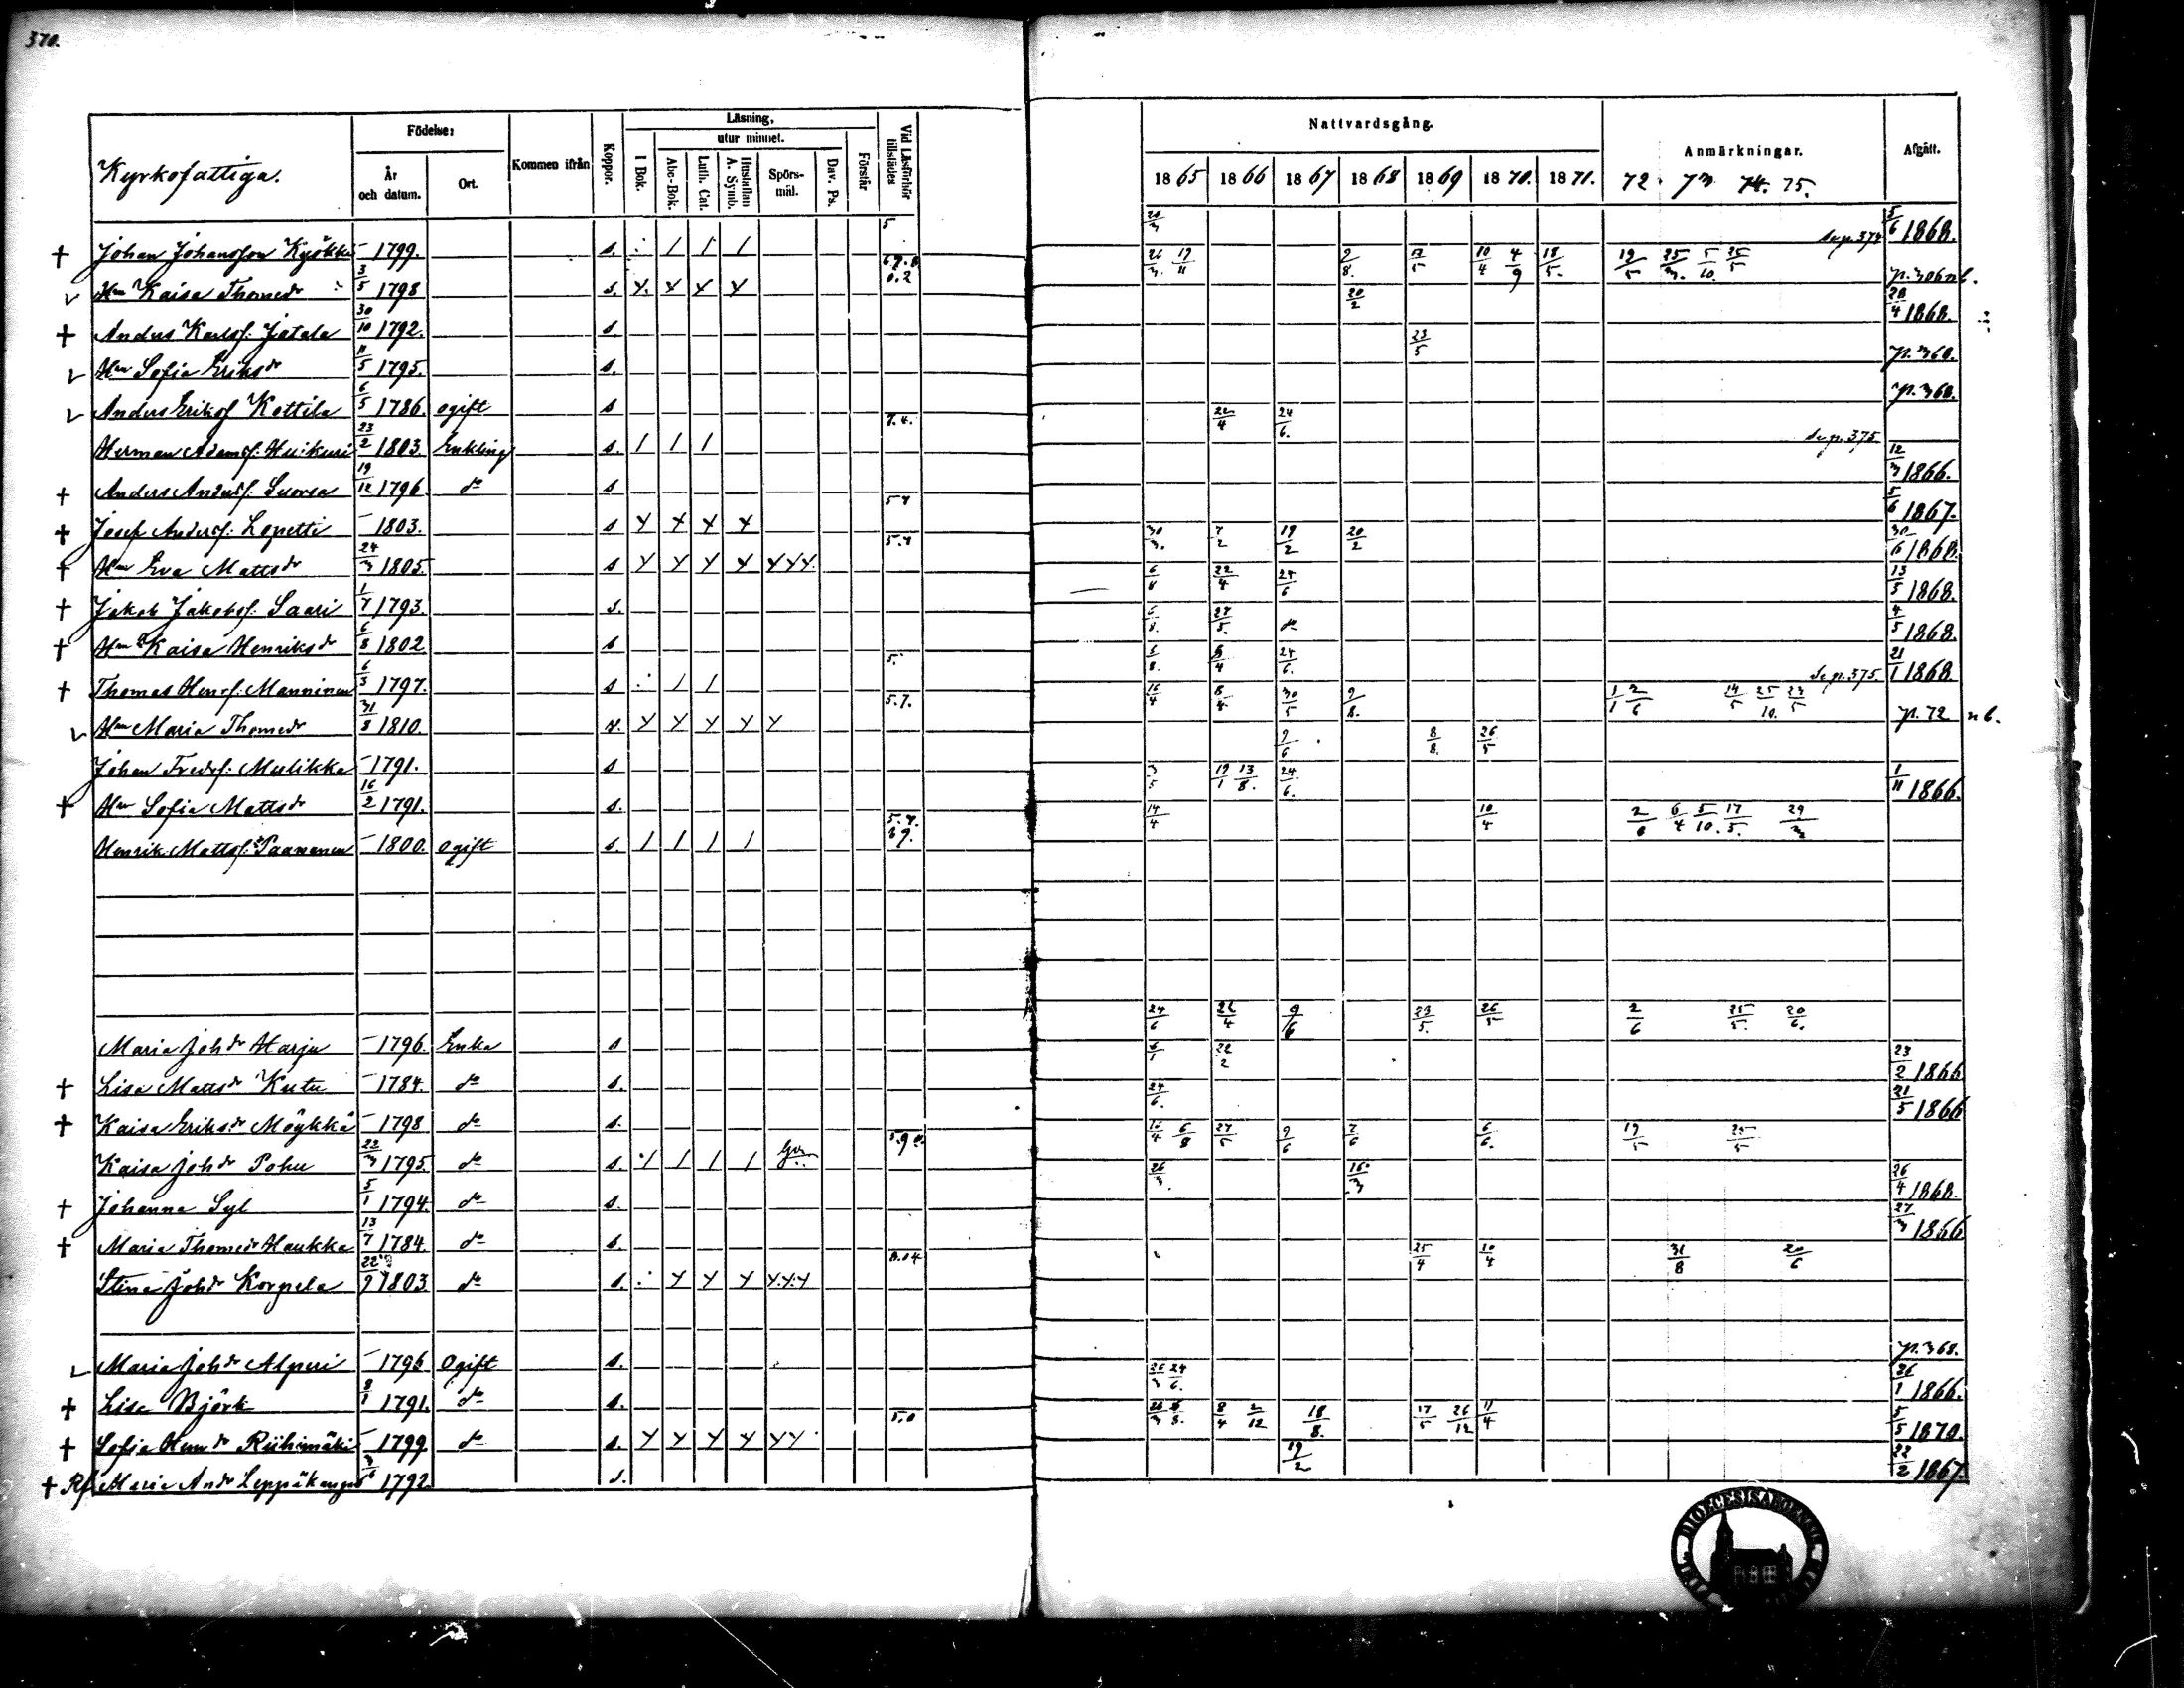 370.
Kyrkofattiga.
Födelse:
År och datum.
Ort.
Kommen ifrån
Koppor.
Läsning,
utur minnet.
I Bok.
Abc-Bok.
Luth. Cat.
Hustaflan A. Symb.
Spörs-mål.
Dav. Ps.
Förstår
Vid Läsförhör tillstädes
Nattvardsgång.
1865 1866 1867 1868 1869 1870. 1871.
Anmärkningar.
72. 73 74. 75.
Afgått.
† Johan Johansson – 1799. s. 26/3 Se p. 374 5/6 1868.
Hm Kaisa Thomedr 3/5 1798 s. 26/3 17/11 9/8. 10/4 4/9 18/5. 19/5 25/3. 5/10. 25/5 p. 306 nb.
† Anders Karlsf. Jatala 30/10 1792. s. 20/2 28/4 1868.
Hm Sofia Eriksdr 11/5 1795. s. 23/5 p. 360.
Anders Eriksf Kottila 6/5 1786. ogift s p. 360.
Herman Adamsf. Huikuri 23/2 1803. Enkling s. 7.4. 22/4 24/6. Se p. 375
† Anders Andersf. Suorsa 19/12 1796 do s 12/3 1866.
† Josef Andersf. Lopetti – 1803. s 5/6 1867.
† Hm Eva Mattsdr 24/3 1805. s 30/3. 7/2 19/2 20/2 30/6 1868.
† Jakob Jakobsf. Saari 1/7 1793. s. 6/8 22/4 24/6 13/5 1868.
† Hm Kaisa Henriksdr 6/8 1802 s 6/8. 27/5. do 4/5 1868.
† Thomas Henrf. Manninen 6/3 1797. s 5. 24/6. Se p. 375 21/1 1868
Hm Maria Thomedr 31/8 1810. 5.7. 15/4 8/4 30/5 9/8. 1/1 2/6 14/5 25/10. 23/5 p. 72 nb.
Johan Fredrf. Mulikka – 1791. s 9/6 8/8. 26/5
† Hm Sofia Mattsdr 16/2 1791. s. 3/5 19/1 13/8. 24/6. 1/11 1866.
Henrik Mattsf. Paananen – 1800. ogift s. 14/4 10/4 2/6 6/4 5/10. 17/5. 29/3
Maria Johdr Harju – 1796. Enka s 24/6 22/4 9/6 23/5. 26/5 2/6 25/5. 20/6.
† Lisa Mattsdr Kutu – 1784. do s. 6/1 22/2 23/2 1866
† Kaisa Eriksdr Möykkä – 1798 do s. 24/6. 21/5 1866
Kaisa Johdr Pohu 23/3 1795. do s. 6/8 27/5 9/6 7/6 6/6. 19/5 25/5
† Johanna Syl 5/1 1794. do s. 26/3. 16/3 26/4 1868.
† Maria Thomedr Haukka 13/7 1784. do s. 27/3 1866
Stina Johdr Korpela 22/9 1803. do s. 25/4 10/4 31/8 20/6
Maria Johdr Alperi – 1796 Ogift s. p. 368.
† Lisa Björk 8/1 1791. do s. 26/3 24/6. 26/1 1866.
† Sofia Henrdr Riihimäki – 1799 do s. 5.0 8/4 2/12 18/8. 17/5 26/12 11/4 5/5 1870.
† Rf Maria Andr Leppäkangas 3/6 1792. s. 19/2 22/2 1867.
DIOECESIS ABOENSIS